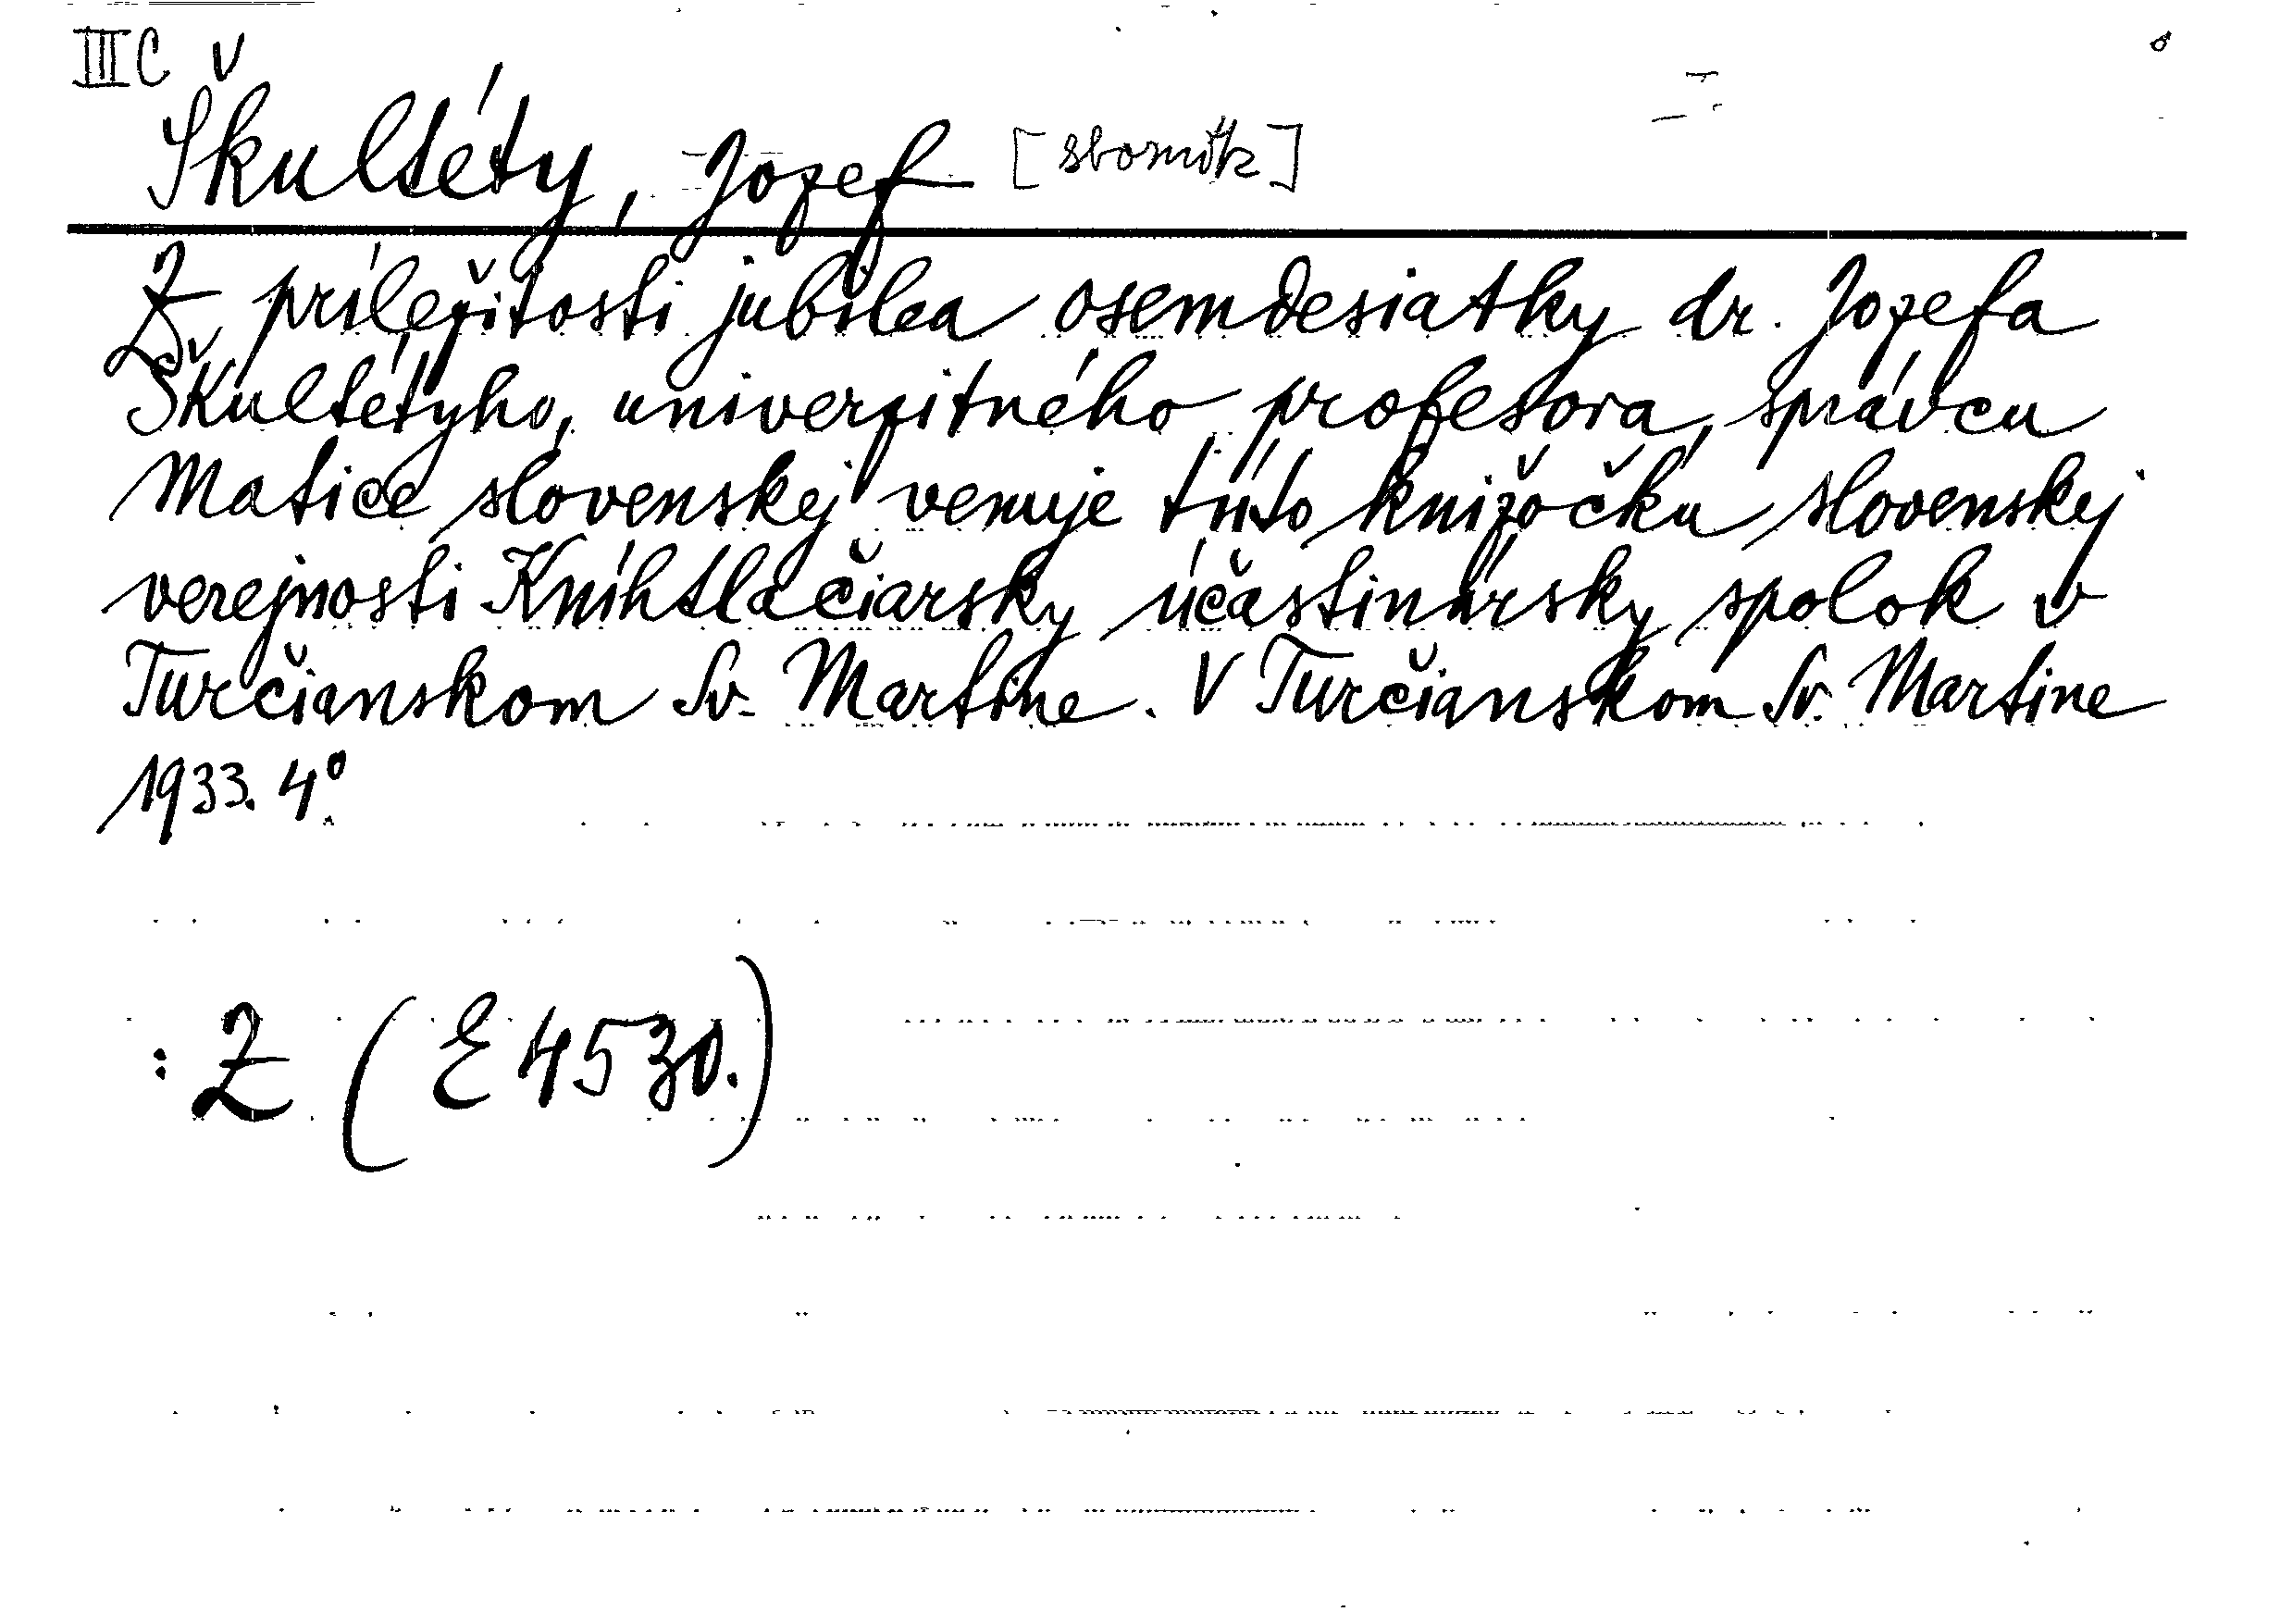 III C
Škultéty, Jozef [sborník]
Z príležitosti jubilea osemdesiatky dr. Jozefa
Škultétyho, univerzitného profesora, správcu
Matice slovenskej venuje túto knižočku slovenskej
verejnosti Kníhtlačiarsky účastinársky spolok v
Turčianskom Sv. Martine. V Turčianskom Sv. Martine
1933. 4°
: Z (E 4530.)